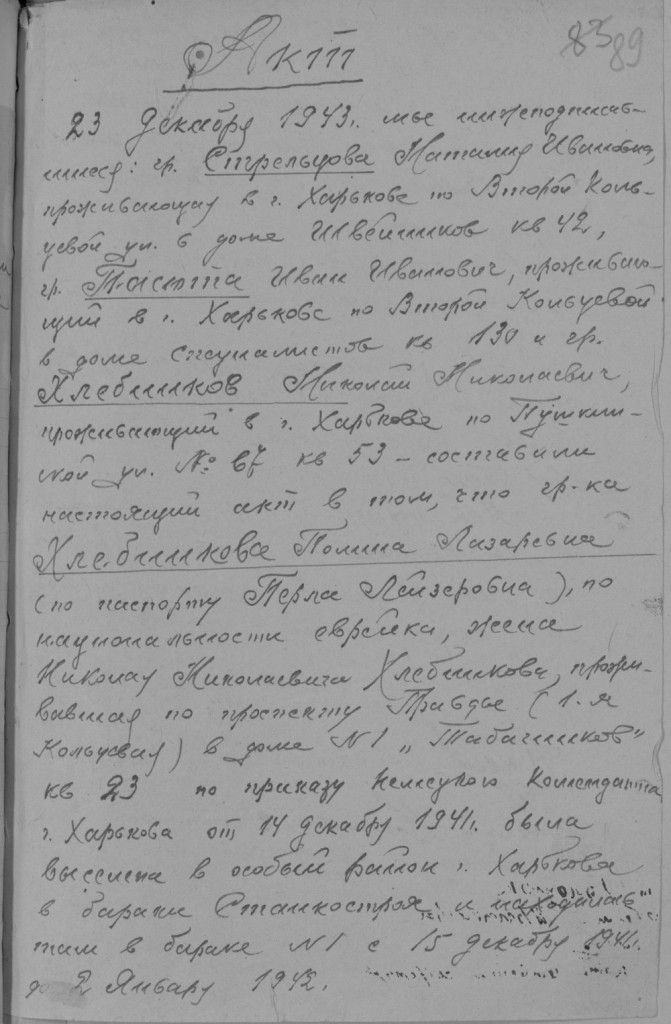 83 89
Акт
23 декабря 1943г. мы нижеподписав-
шиеся: гр. Стрельцова Наталия Ивановна,
проживающая в г. Харькове по Второй Коль-
цевой ул. в доме Швейников кв 42,
гр. Тасюта Иван Иванович, проживаю-
щий в г. Харькове по Второй Кольцевой
в доме специалистов кв 130 и гр.
Хлебников Николай Николаевич,
проживающий в г. Харькове по Пушкин-
ской ул. № 67 кв 53 – составили
настоящий акт в том, что гр-ка
Хлебникова Полина Лазаревна
(по паспорту Перла Лейзеровна), по
национальности еврейка, жена
Николая Николаевича Хлебникова, прожи-
вавшая по проспекту Правды (1-я
Кольцевая) в доме N1 „Табачников"
кв 23 по приказу Немецкого Коменданта
г. Харькова от 14 декабря 1941г. была
выселена в особый район г. Харькова
в бараки Станкостроя, и находилась
там в бараке N1 с 15 декабря 1941г.
до 2 Января 1942.